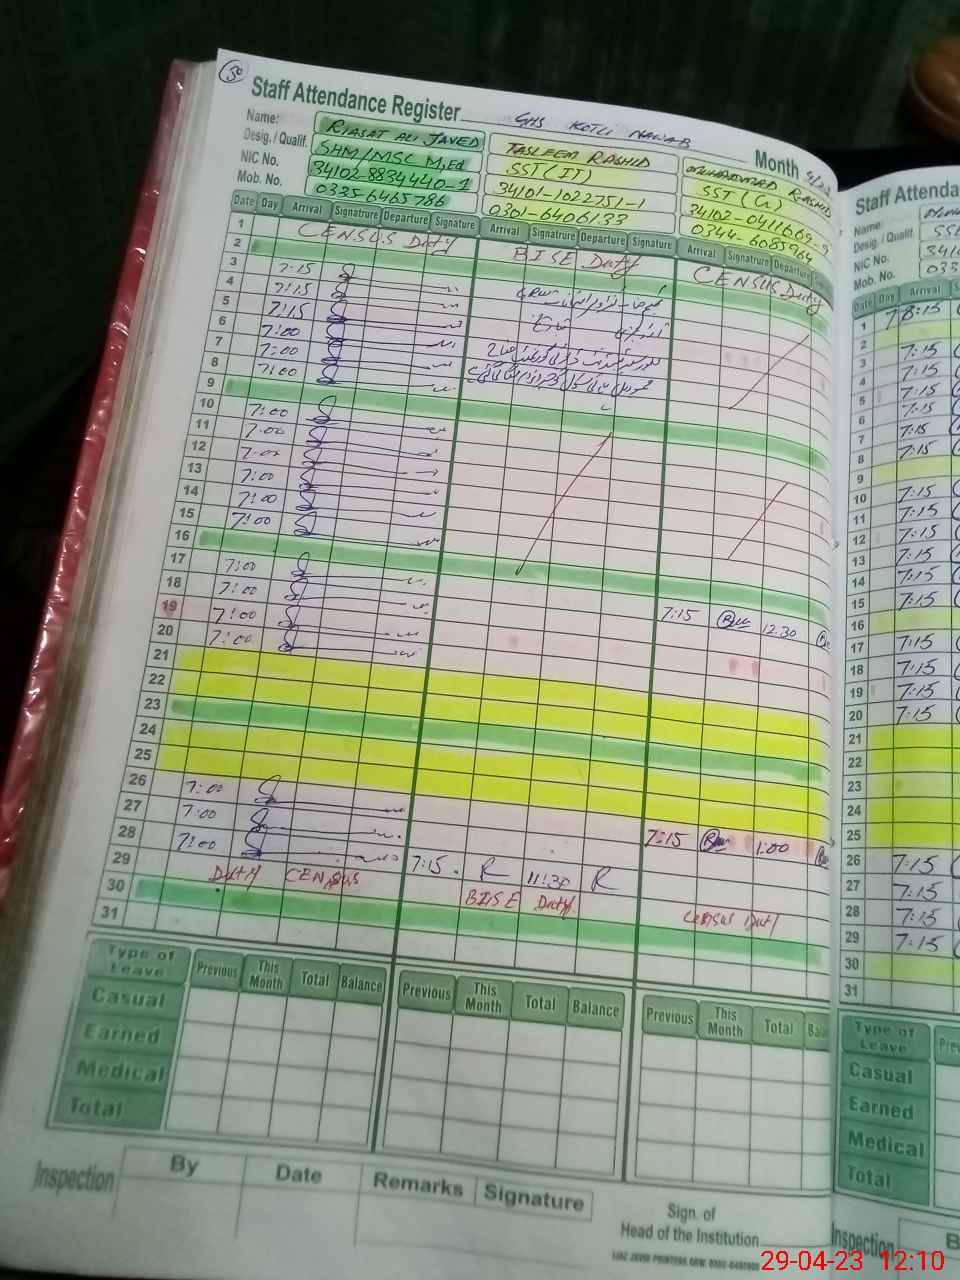 50
Staff Attendance Register GHS KOTLI NAWAB Month 4/23
Name: RIASAT ALI JAVED TASLEEM RASHID MUHAMMAD RASHID
Desig. / Qualif. SHM/MSC M,Ed SST(IT) SST (G)
NIC No. 34102-8834440-1 34101-1022751-1
Mob. No. 0335-6465786 0301-6406133 0344-6085964
Date Day Arrival Signatrure Departure Signature Arrival Signatrure Departure Signature Arrival Signatrure Departure
1 CENSUS Duty BISE Duty CENSUS Duty
2
3 7:15
4 7:15
5 7:15
6 7:00
7 7:00
8 7:00
9
10 7:00
11 7:00
12 7:00
13 7:00
14 7:00
15 7:00
16
17 7:00
18 7:00
19 7:00 7:15 12:30
20 7:00
21
22
23
24
25
26 7:00
27 7:00
28 7:00 7:15 1:00
29 Duty CENSUS 7:15. R 11:30 R
30 BISE Duty. Census Duty
31
Type of Leave Previous This Month Total Balance Previous This Month Total Balance Previous This Month Total
Casual
Earned
Medical
Total
Inspection By Date Remarks Signature
Sign. of
Head of the Institution
Staff Attenda
Name:
Desig. / Qualif.
NIC No.
Mob. No.
Date Day Arrival
1 8:15
2
3 7:15
4 7:15
5 7:15
6 7:15
7 7:15
8 7:15
9
10 7:15
11 7:15
12 7:15
13 7:15
14 7:15
15 7:15
16
17 7:15
18 7:15
19 7:15
20 7:15
21
22
23
24
25
26 7:15
27 7:15
28 7:15
29 7:15
30
31
Type of Leave
Casual
Earned
Medical
Total
Inspection
29-04-23 12:10